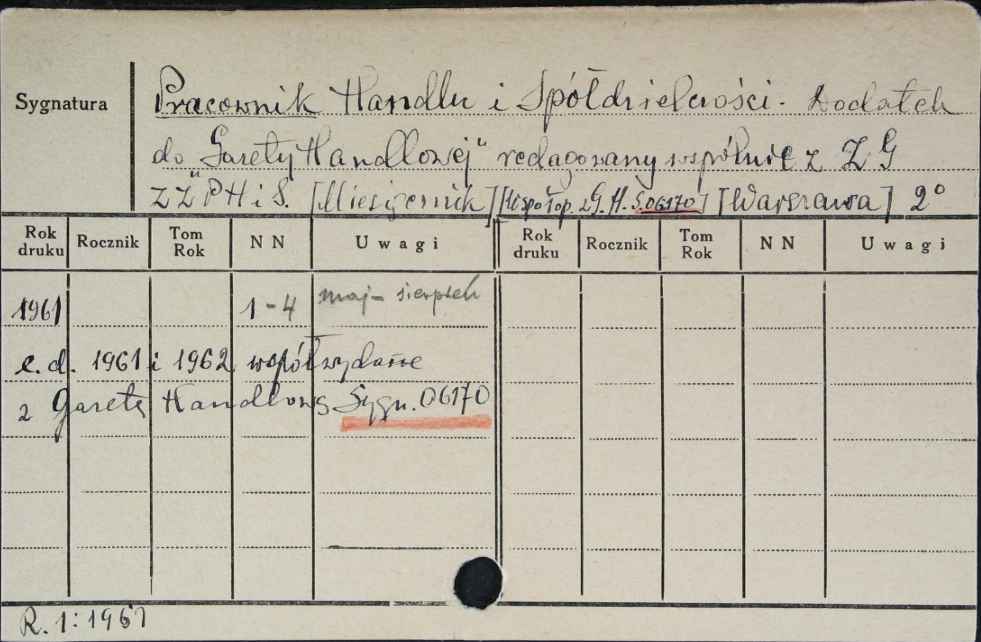 Sygnatura
Pracownik Handlu i Spółdzielczości. Dodatek
do „Gazety Handlowej" redagowany wspólnie z ZG
ZZPHiS. [Miesięcznik] [Współop. z G. H. S.06170] [Warszawa] 2°
Rok druku Rocznik Tom Rok NN Uwagi Rok druku Rocznik Tom Rok NN Uwagi
1961 1-4 maj - sierpień
c.d. 1961 i 1962 współwydane
z Gazetą Handlową Sygn. 06170
R. 1: 1961